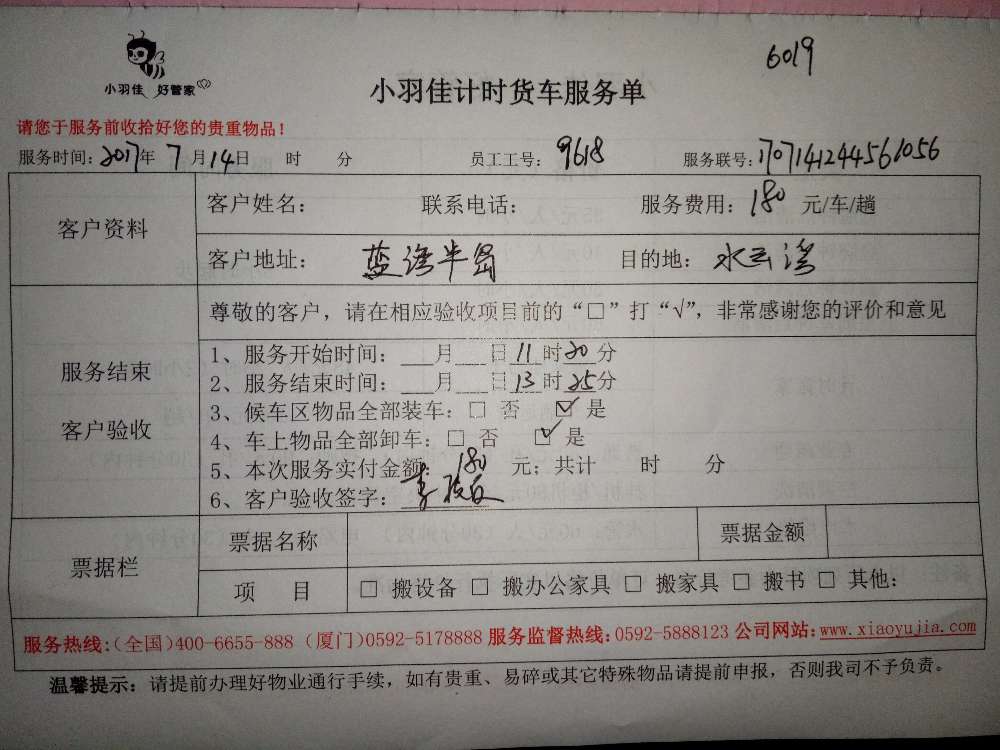 6019
小羽佳 好管家
小羽佳计时货车服务单
请您于服务前收拾好您的贵重物品！
服务时间：2017年 7月14日 时 分 员工工号：9618 服务联号：1707141244561056
客户资料
客户姓名： 联系电话： 服务费用：180 元/车/趟
客户地址： 蓝湾半岛 目的地： 水云湾
服务结束
客户验收
尊敬的客户，请在相应验收项目前的“□”打“√”，非常感谢您的评价和意见
1、服务开始时间：___月___日11时20分
2、服务结束时间：___月___日13时25分
3、候车区物品全部装车：□ 否 ☑ 是
4、车上物品全部卸车：□ 否 ☑ 是
5、本次服务实付金额：180 元；共计 时 分
6、客户验收签字：
票据栏
票据名称 票据金额
项 目 □ 搬设备 □ 搬办公家具 □ 搬家具 □ 搬书 □ 其他：
服务热线：(全国)400-6655-888 (厦门)0592-5178888 服务监督热线：0592-5888123 公司网站：www.xiaoyujia.com
温馨提示：请提前办理好物业通行手续，如有贵重、易碎或其它特殊物品请提前申报，否则我司不予负责。